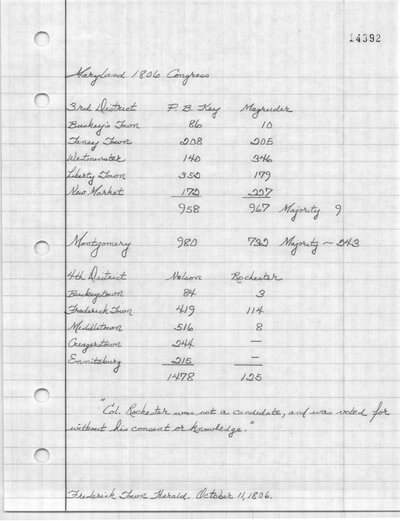 14392
Maryland 1806 Congress
3rd District P. B. Key Magruder
Buckey's Town 86 10
Taney Town 208 205
Westminster 140 346
Liberty Town 350 179
New Market 227
958 967 Majority 9
Montgomery 980 Majority - 243
4th District Nelson Rochester
Buckeystown 84 3
Frederick Town 419 114
Middletown 516 8
Creagerstown 244 —
Emmitsburg 215 —
1478 125
"Col. Rochester was not a candidate, and was voted for
without his consent or knowledge."
Frederick Town Herald. October 11, 1806.